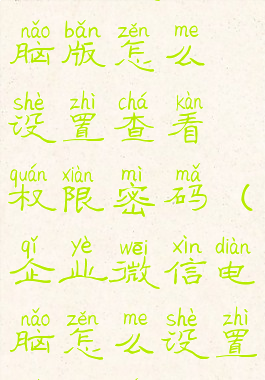 nǎo bǎn zěn me
脑版怎么
shè zhì chá kàn
设置查看
quán xiàn mì mǎ
权限密码（
qǐ yè wēi xìn diàn
企业微信电
nǎo zěn me shè zhì
脑怎么设置